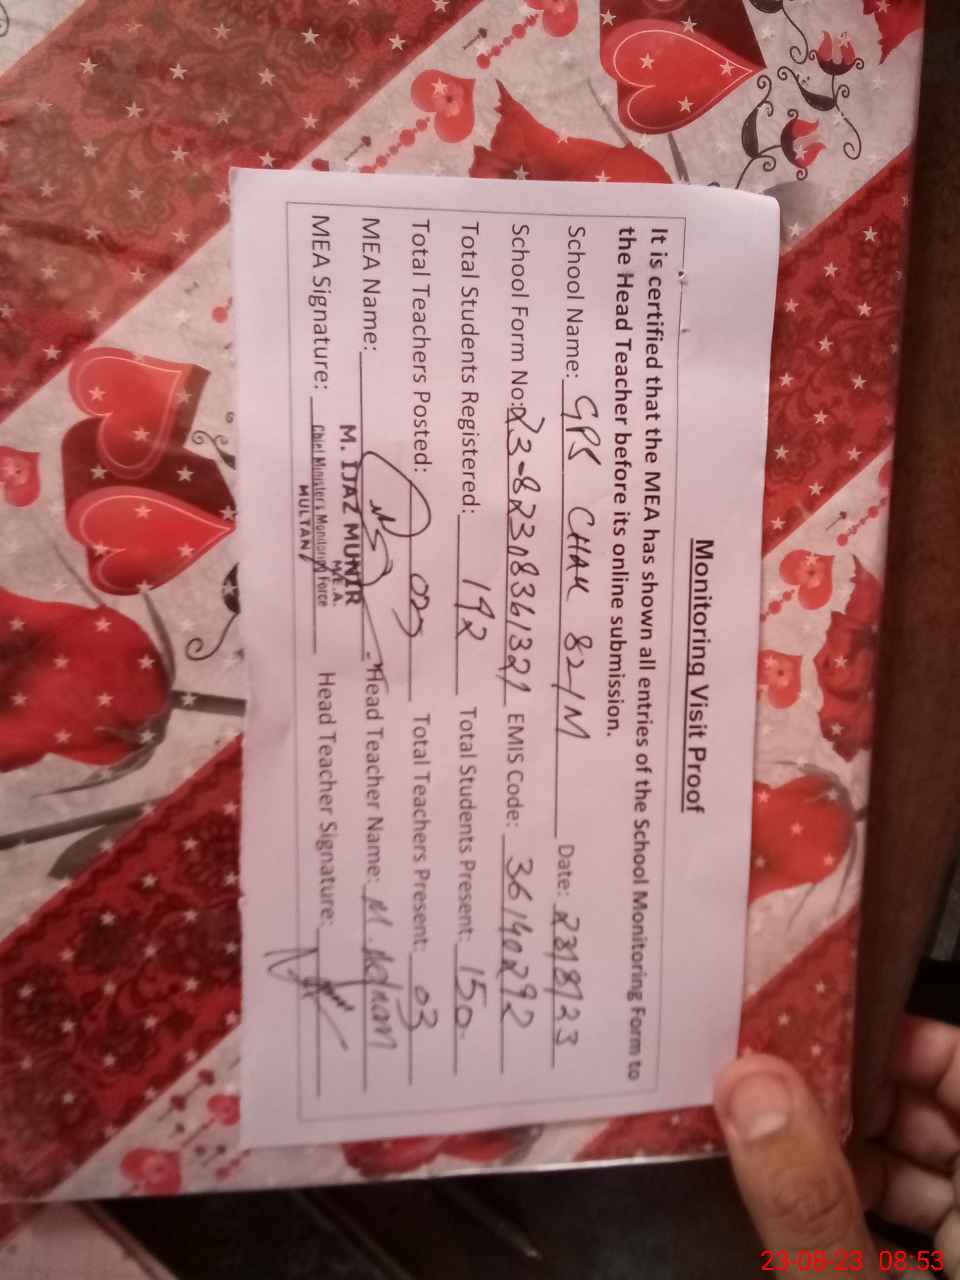 Monitoring Visit Proof
It is certified that the MEA has shown all entries of the School Monitoring Form to
the Head Teacher before its online submission.
School Name: GPS CHAK 82/M Date: 23/8/23
School Form No: EMIS Code: 36140292
Total Students Registered: 192 Total Students Present: 150
Total Teachers Posted: 03 Total Teachers Present: 03
MEA Name: Head Teacher Name: M. Adnan
M. IJAZ MUNIR
M.E.A.
MEA Signature: Chief Minister's Monitoring Force Head Teacher Signature:
MULTAN
23-08-23 08:53